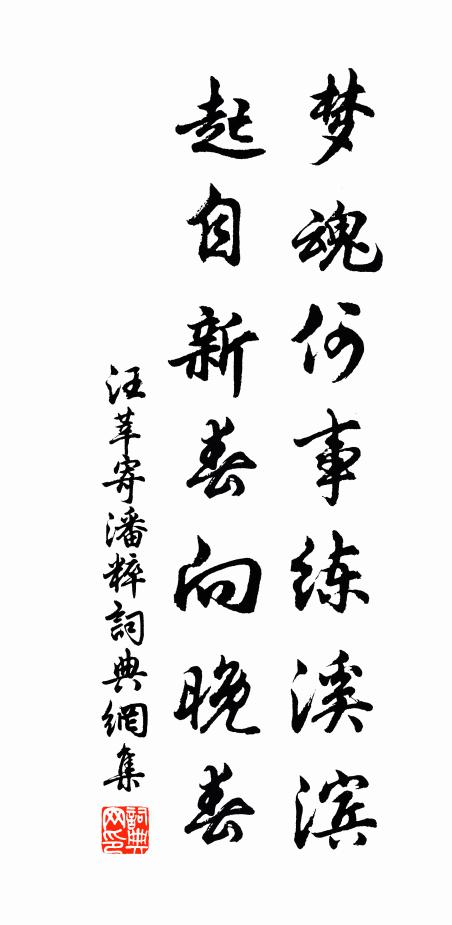 梦魂何事练溪滨
起自新春向晚春
汪莘寄潘粹詞典網集
詞典网印